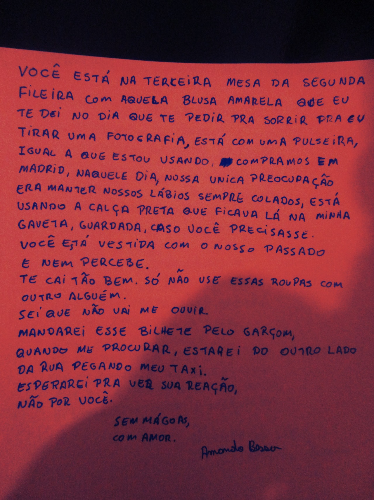 VOCÊ ESTÁ NA TERCEIRA MESA DA SEGUNDA
FILEIRA COM AQUELA BLUSA AMARELA QUE EU
TE DEI NO DIA QUE TE PEDIR PRA SORRIR PRA EU
TIRAR UMA FOTOGRAFIA, ESTÁ COM UMA PULSEIRA,
IGUAL A QUE ESTOU USANDO. COMPRAMOS EM
MADRID, NAQUELE DIA, NOSSA UNICA PREOCUPAÇÃO
ERA MANTER NOSSOS LÁBIOS SEMPRE COLADOS, ESTÁ
USANDO A CALÇA PRETA QUE FICAVA LÁ NA MINHA
GAVETA, GUARDADA, CASO VOCÊ PRECISASSE.
VOCÊ ESTÁ VESTIDA COM O NOSSO PASSADO
E NEM PERCEBE.
TE CAI TÃO BEM. SÓ NÃO USE ESSAS ROUPAS COM
OUTRO ALGUÉM.
SEI QUE NÃO VAI ME OUVIR.
MANDAREI ESSE BILHETE PELO GARÇOM,
QUANDO ME PROCURAR, ESTAREI DO OUTRO LADO
DA RUA PEGANDO MEU TAXI.
ESPERAREI PRA VER SUA REAÇÃO,
NÃO POR VOCÊ.
SEM MÁGOAS,
COM AMOR.